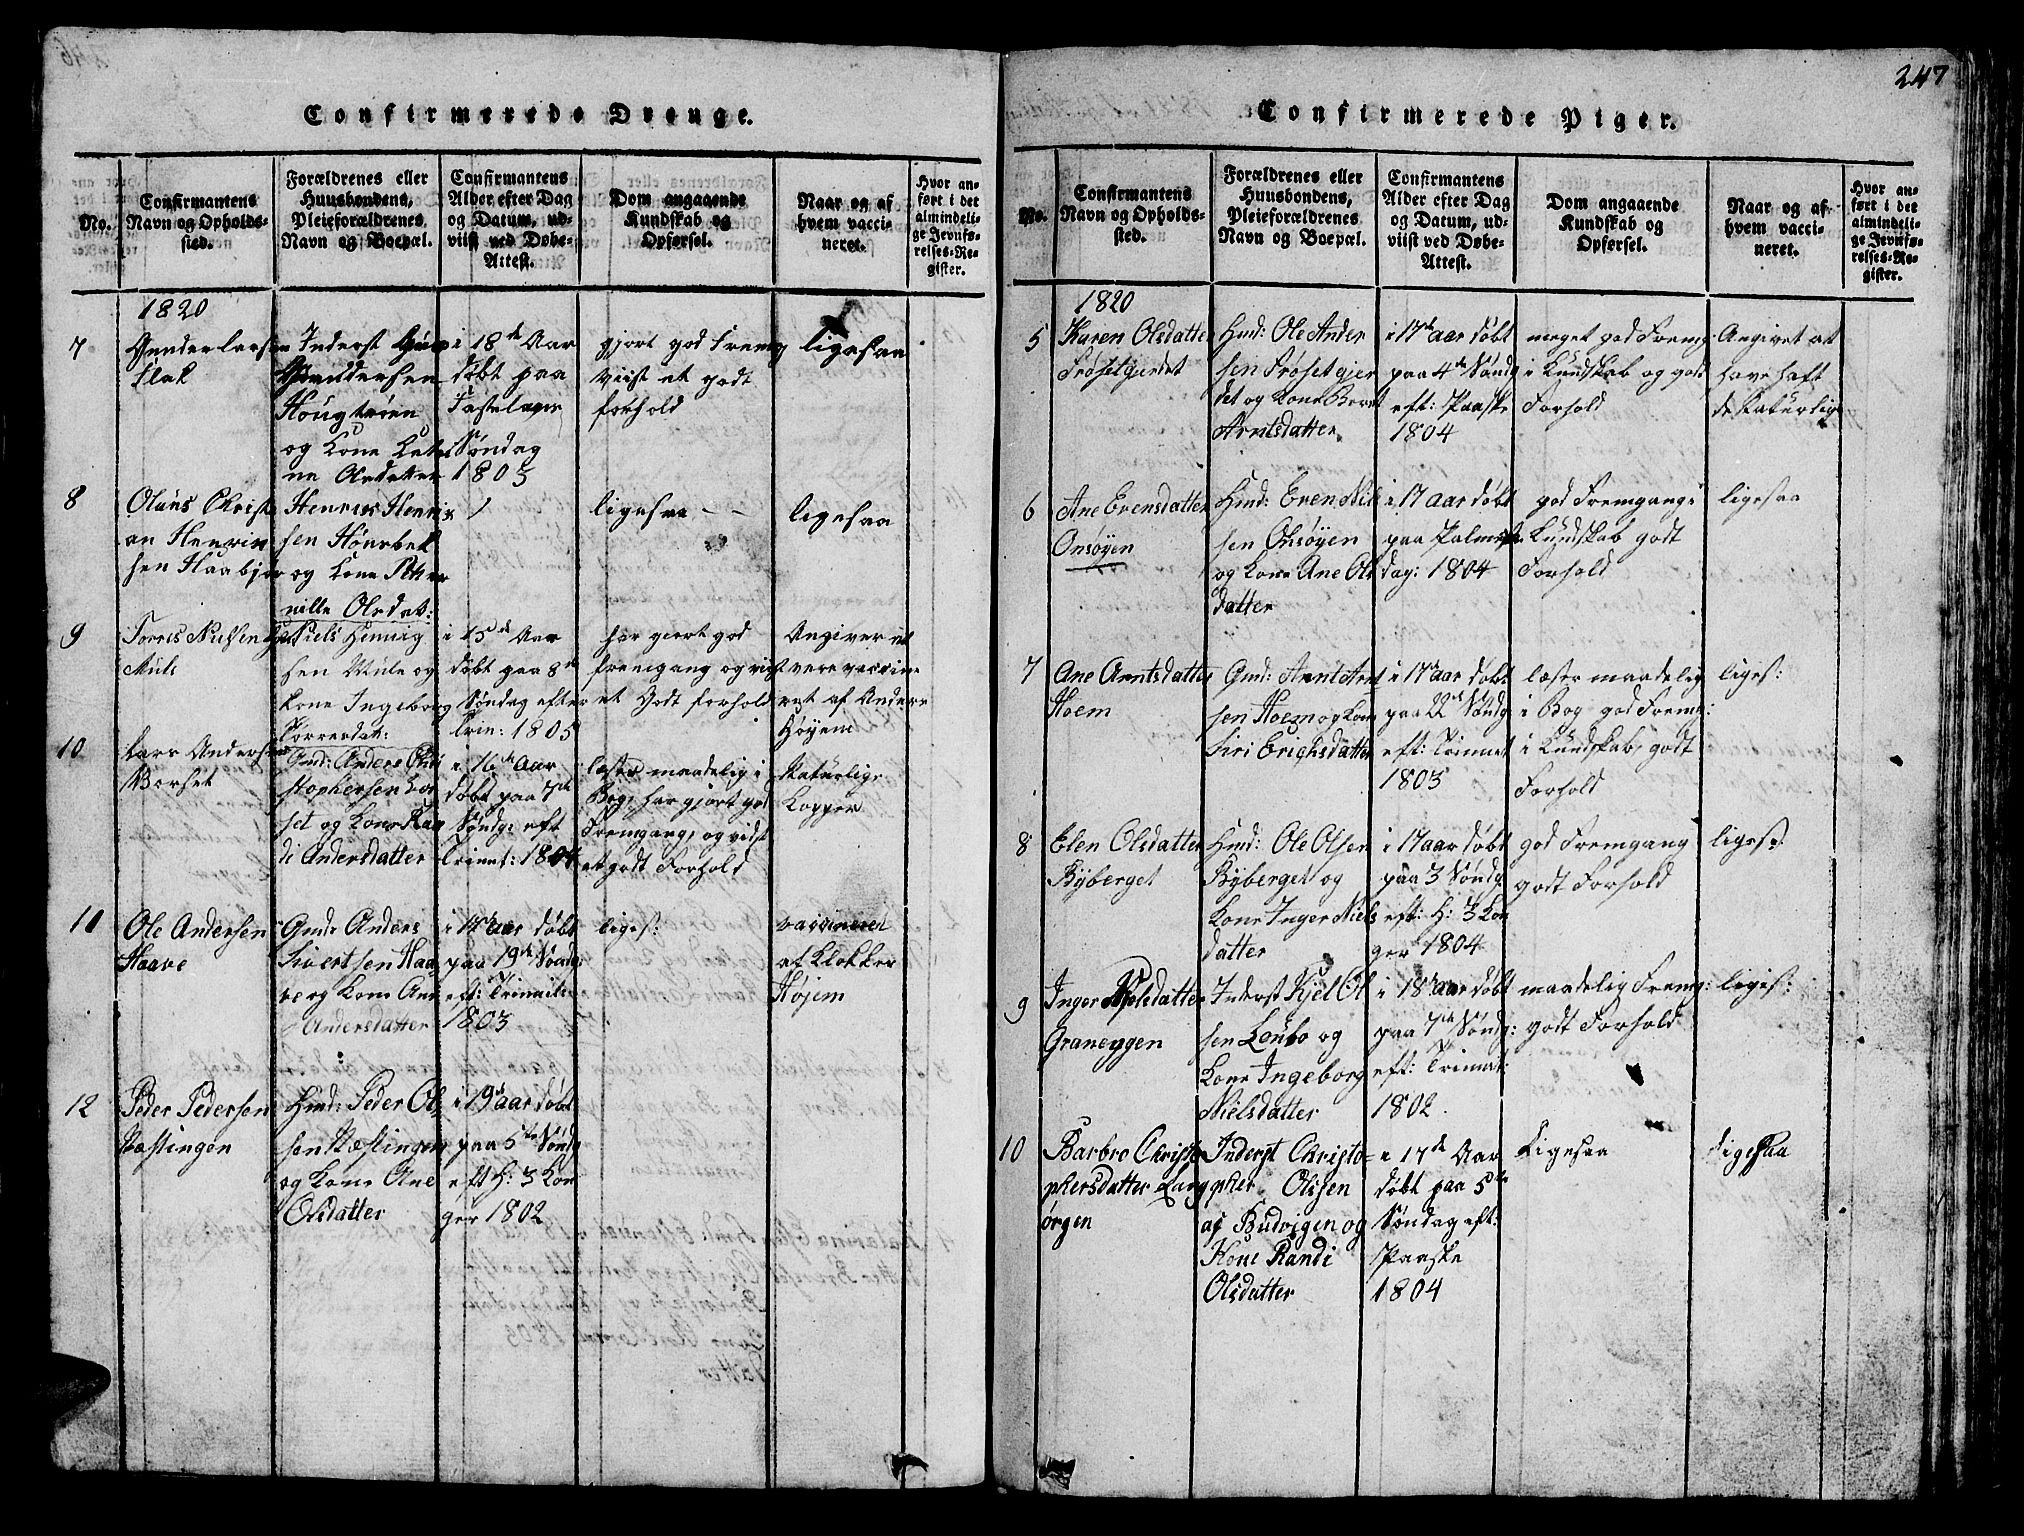 247
Confirmerede Drenge.
No.
Confirmantens
Navn og Opholds-
sted.
Forældrenes eller
Huusbondens,
Pleieforældrenes
Navn og Boepæl.
Confirmantens
Alder efter Dag
og Datum, ud-
viist ved Døbe-
Attest.
Dom angaaende
Kundskab og
Opførsel.
Naar og af
hvem vacci-
neret.
Hvor an-
ført i det
almindeli-
ge Jevnfø-
relses-Re-
gister.
1820
7
Gunder Larsen
Flak
Inderst
Gundersen
Hougtrøen
og Kone
ne Olsdatter
i 18de Aar
døbt paa
Fastelavns
Søndag
1803
gjort god Fremg
Viist et godt
forhold
ligesaa
8
Olaus Christi
an Henrik
sen Haabjør
Henrik Henrik
sen
og Kone Peter
nille Olsdat:
ligesaa
ligesaa
9
Torres Nielsen
Mule
Niels Henrig
sen Mule og
Kone Ingeborg
Torresdat:
i 15de Aar
døbt paa 8de
Søndag efter
Trin: 1805
har giort god
fremgang og viist
et Godt forhold
Angiver at
være vaccine
ret af Anders
Høyem
10
Lars Andersen
Borset
Gmd: Anders Chri
stophersen Bor
set og Kone Ran
di Andersdatter
i 16de Aar
døbt paa 7de
Søndg: eft
Trinit: 1804
læser maadelig i
Bog, har gjort god
Fremgang, og vidst
et godt Forhold
Naturlige
Kopper
11
Ole Andersen
Haave
Gmd: Anders
Sivertsen Haa
ve og Kone Ane
Andersdatter
i 17de aar døbt
paa 19de Søndg:
eft: Trinit:
1803
liges:
vaccineret
af Klokker
Højem
12
Peder Pedersen
Næstingen
Hmd: Peder Ol
sen Næstingen
og Kone Ane
Olsdatter
i 19de aar døbt
paa 5te Søndg
eft H: 3 Kon
ger 1802
Confirmerede Piger.
No.
Confirmantens
Navn og Opholds-
sted.
Forældrenes eller
Huusbondens,
Pleieforældrenes
Navn og Boepæl.
Confirmantens
Alder efter Dag
og Datum, ud-
viist ved Døbe-
Attest.
Dom angaaende
Kundskab og
Opførsel.
Naar og af
hvem vacci-
neret.
Hvor an-
ført i det
almindeli-
ge Jevnfø-
relses-Re-
gister.
1820
5
Karen Olsdatter
Frøsetgjerdet
Hmd: Ole Ander
sen Frøsetgjer
det og Kone Beret
Arntsdatter
i 17de aar døbt
paa 4de Søndg
eft: Paaske
1804
meget god Fremg
i Kundskab og godt
Forhold
Angivet at
have haft
de Naturlige
6
Ane Evensdatter
Onsøyen
Hmd: Even Niel
sen Onsøyen
og Kone Ane Ols
datter
i 17 aar døbt
paa Palme
dag: 1804
god Fremgang i
Kundskab godt
Forhold
ligesaa
7
Ane Arntsdatter
Hoem
Gmd: Arnt Arnt
sen Hoem og Kone
Siri Erichsdatter
i 17de aar døbt
paa 22de Søndg
eft: Trinit
1803
læser maadelig
i Bog god Fremg:
i Kundskab, godt
Forhold
liges:
8
Elen Olsdatter
Byberget
Hmd: Ole Olsen
Byberget og
Kone Inger Niels
datter
i 17 aar døbt
paa 3 Søndg
eft: H: 3 Kon
ger 1804
god Fremgang
godt Forhold
liges:
9
Inger Kjelsdatter
Graneggen
Inderst Kjel Ol
sen Loübo og
Kone Ingeborg
Nielsdatter
i 18de aar døbt
paa 7de Søndg:
eft: Trinit:
1802
maadelig Fremg:
godt Forhold
liges:
10
Barbro Christo
phersdatter Lang
ørgen
Inderst Christo-
pher Olssen
af Budvigen og
Kone Randi
Olsdatter
i 17de Aar
døbt paa 5te
Søndag eft:
Paaske
1804
Ligesaa
Ligesaa